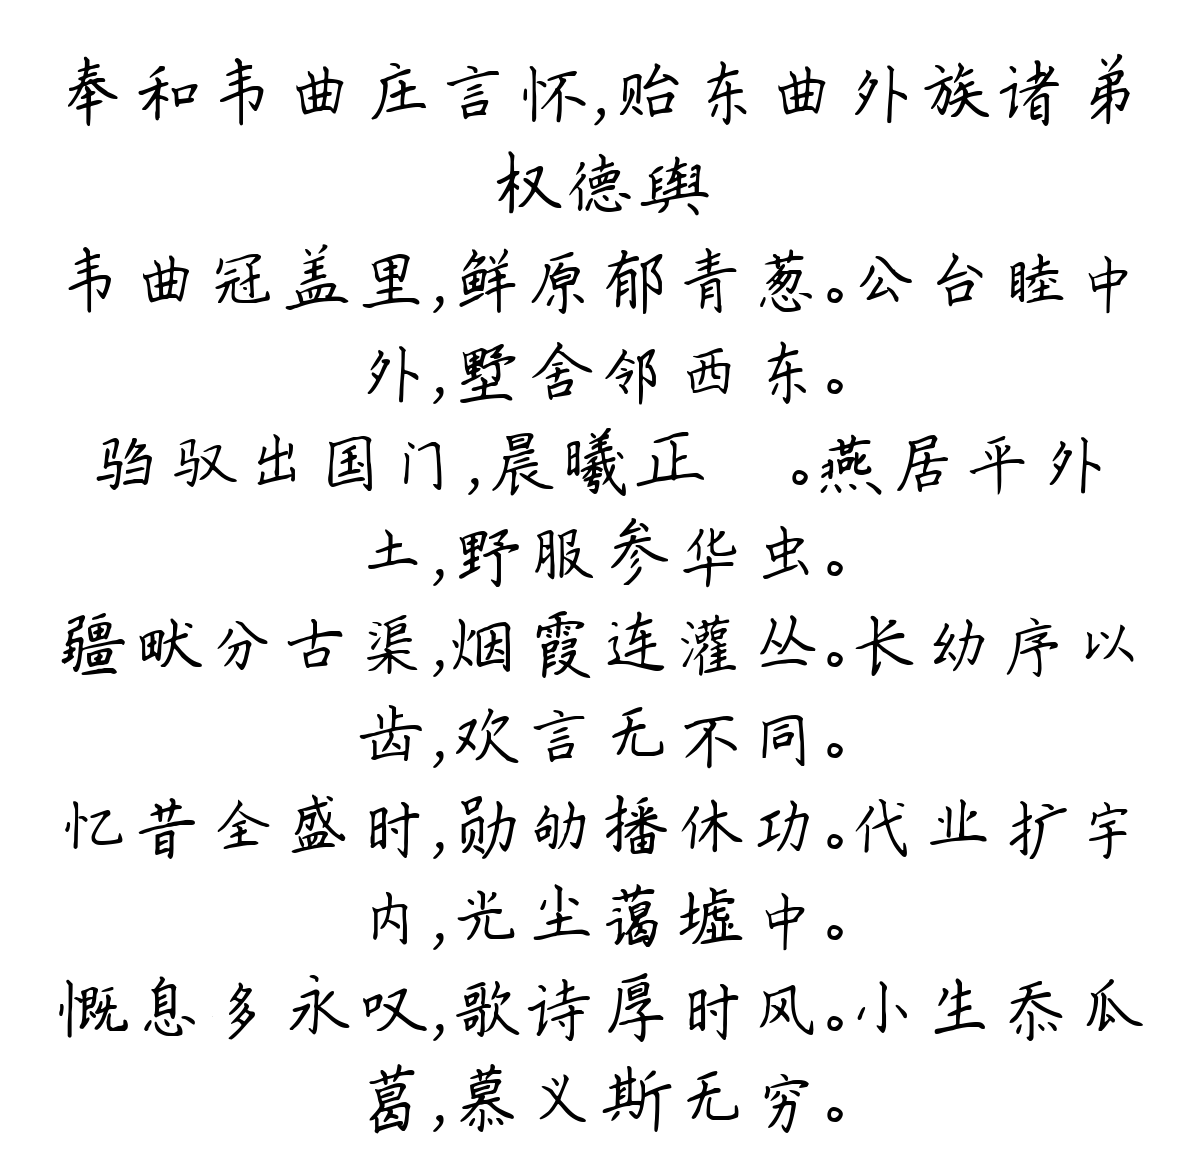 奉和韦曲庄言怀,贻东曲外族诸弟
权德舆
韦曲冠盖里,鲜原郁青葱。公台睦中
外,墅舍邻西东。
驺驭出国门,晨曦正 。燕居平外
土,野服参华虫。
疆畎分古渠,烟霞连灌丛。长幼序以
齿,欢言无不同。
忆昔全盛时,勋劬播休功。代业扩宇
内,光尘蔼墟中。
慨息多永叹,歌诗厚时风。小生忝瓜
葛,慕义斯无穷。